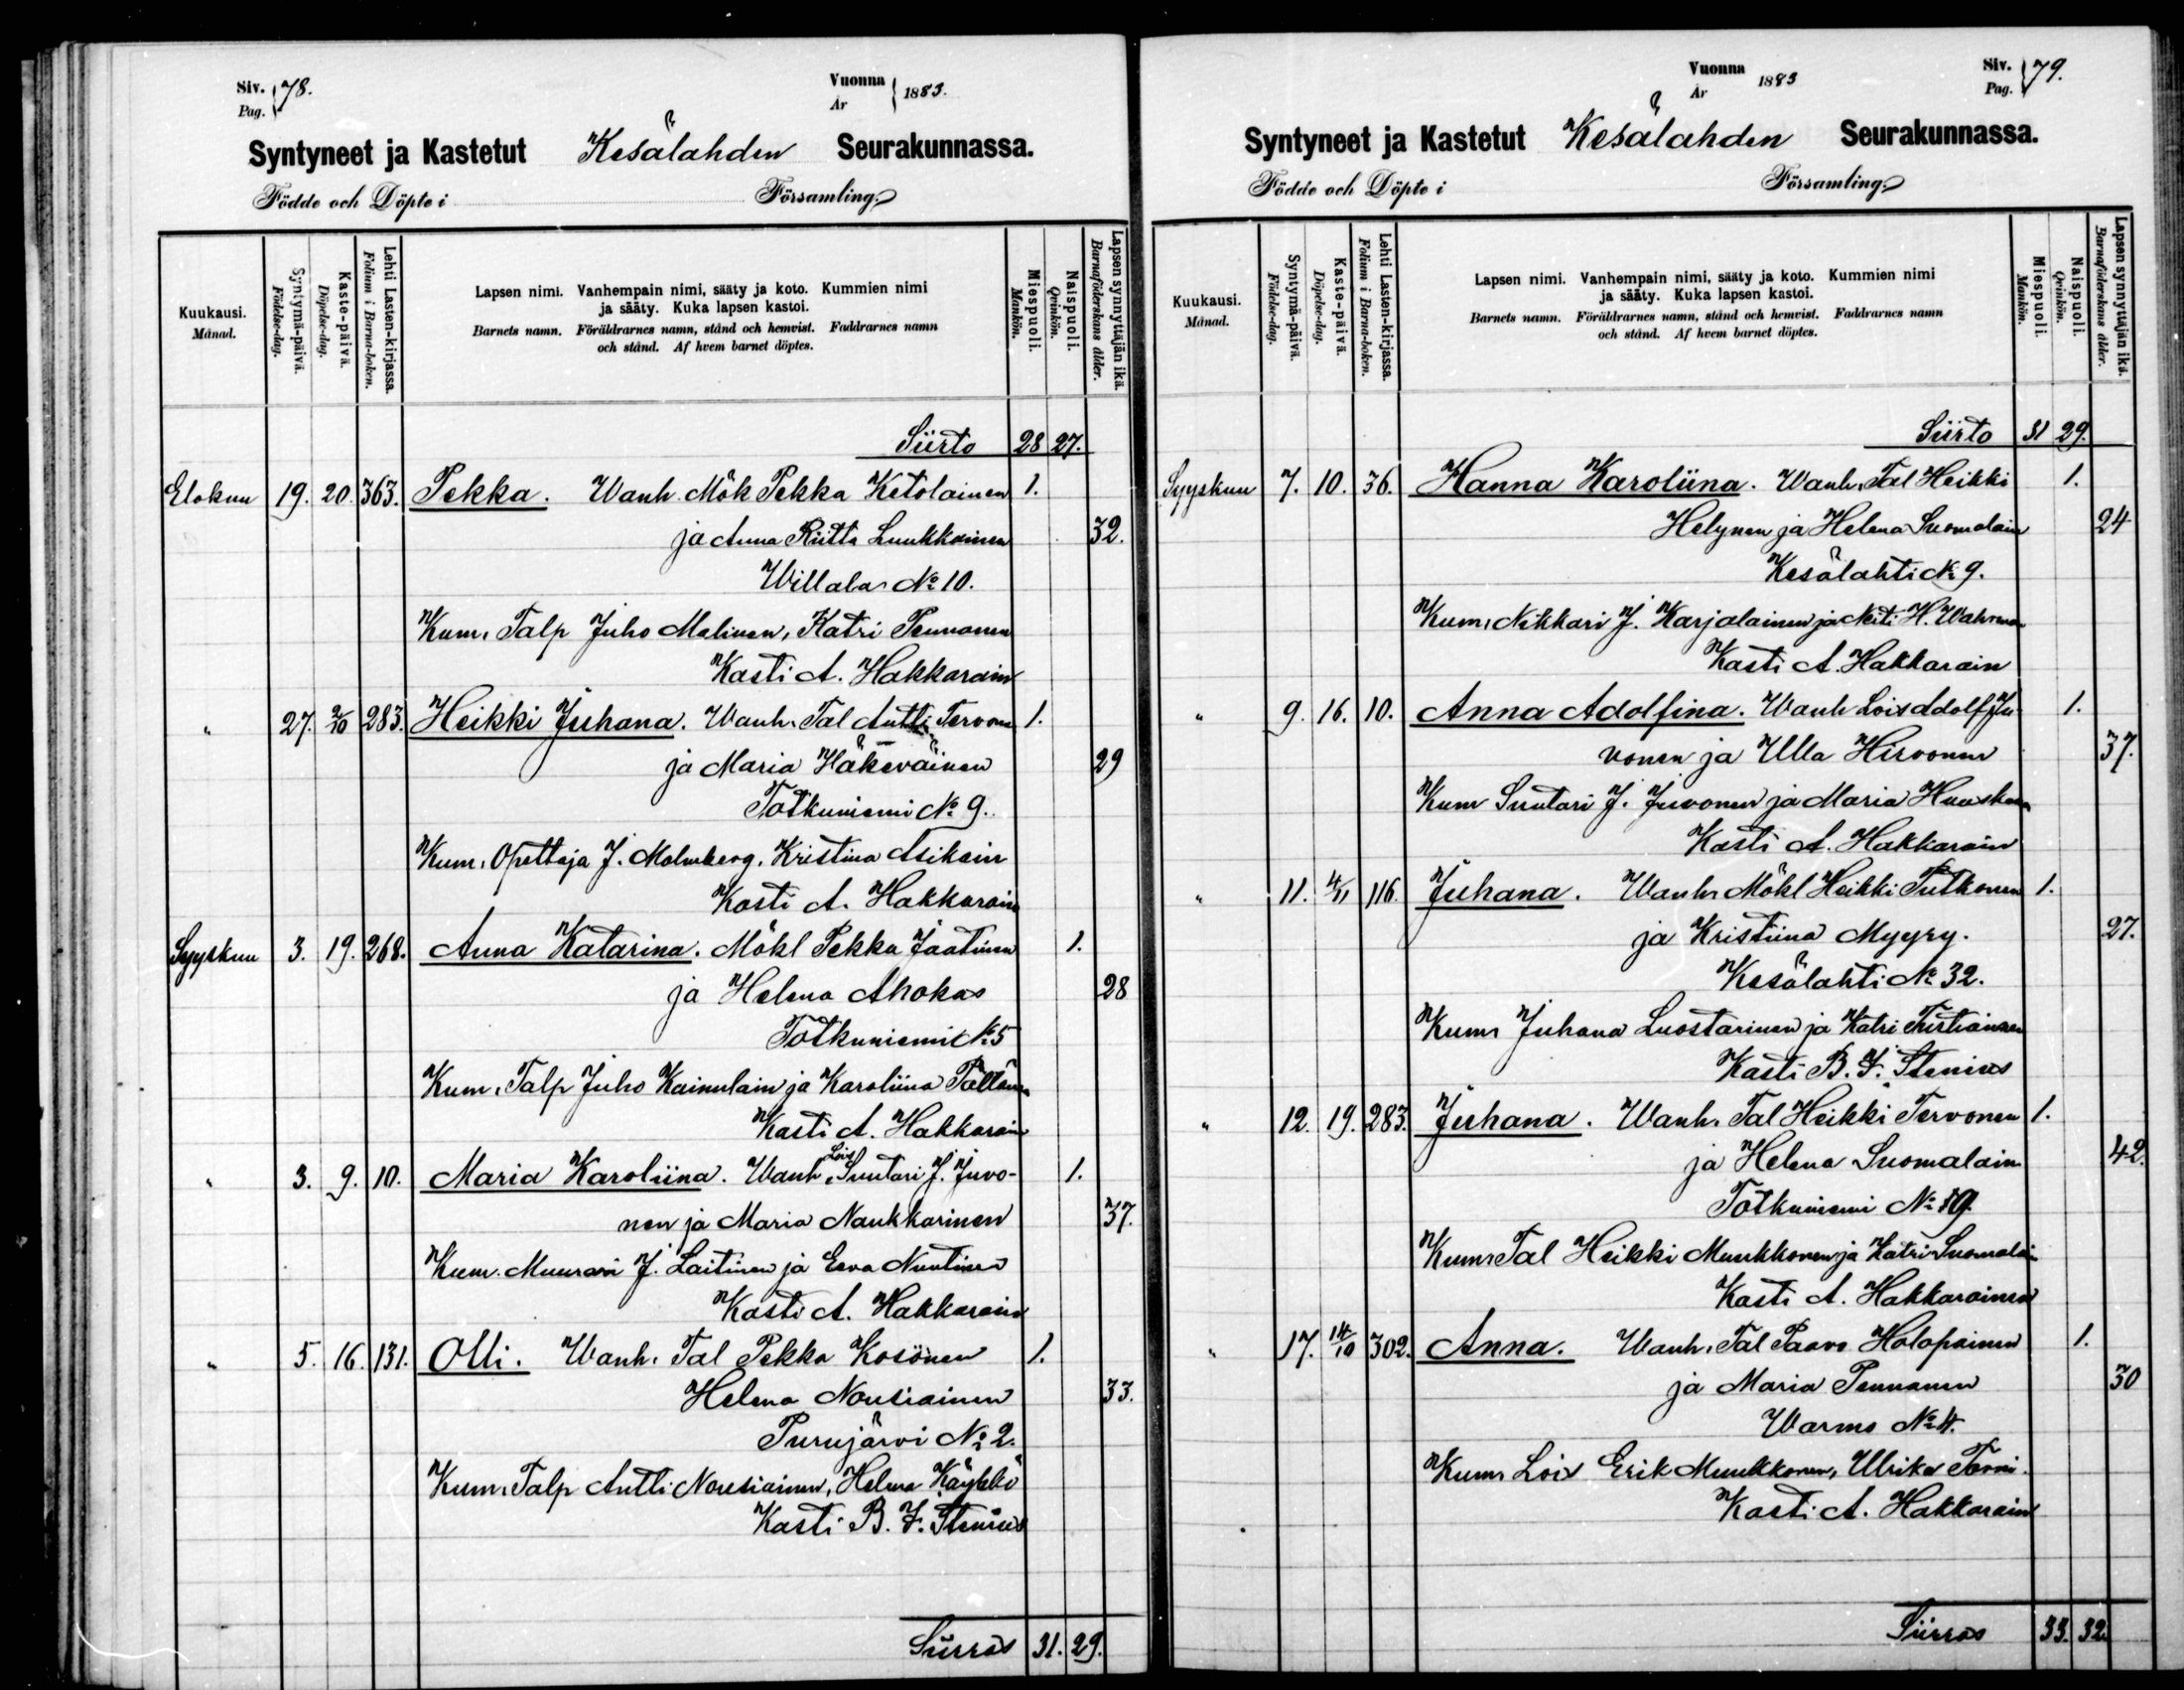 Siv. 78. Vuonna 1883.
Pag. År
Syntyneet ja Kastetut Kesälahden Seurakunnassa.
Födde och Döpte i Församling.
Kuukausi. Månad.
Syntymä-päivä. Födelse-dag.
Kaste-päivä. Döpelse-dag.
Lehti Lasten-kirjassa. Folium i Barna-boken.
Lapsen nimi. Vanhempain nimi, sääty ja koto. Kummien nimi
ja sääty. Kuka lapsen kastoi.
Barnets namn. Föräldrarnes namn, stånd och hemvist. Faddrarnes namn
och stånd. Af hvem barnet döptes.
Miespuoli. Mankön.
Naispuoli. Qvinkön.
Lapsen synnyttäjän ikä. Barnaföderskans ålder.
Siirto 28 27.
Elokuu 19. 20. 363. Pekka. Wanh. Mök Pekka Ketolainen 1.
ja Anna Riitta Luukkainen 32.
Willala No 10.
Kum. Talp Juho Malinen, Katri Pennanen
Kasti A. Hakkarain
" 27. 2/10 283. Heikki Juhana. Wanh. Tal Antti Tervon 1.
ja Maria Häkeväinen 29
Totkuniemi No 9.
Kum. Opettaja J. Malmberg, Kristina Asikain
Kasti A. Hakkarain
Syyskuu 3. 19. 268. Anna Katarina. Mökl Pekka Jaatinen 1.
ja Helena Ahokas 28
Totkuniemi No 5
Kum. Talp Juho Kainulain ja Karoliina
Kasti A. Hakkarain
" 3. 9. 10. Maria Karoliina. Wanh. Lois Suutari J. Juvo- 1.
nen ja Maria Naukkarinen 37.
Kum. Muurari J. Laitinen ja Eeva Nuutinen
Kasti A. Hakkarain
" 5. 16. 131. Olli. Wanh. Tal Pekka Kosonen 1.
Helena Nousiainen 33.
Purujärvi No 2.
Kum. Talp Antti Nousiainen, Helena Käyhkö
Kasti B. F. Stenius
Siirros 31. 29.
Vuonna 1883 Siv. 79.
År Pag.
Syntyneet ja Kastetut Kesälahden Seurakunnassa.
Födde och Döpte i Församling.
Kuukausi. Månad.
Syntymä-päivä. Födelse-dag.
Kaste-päivä. Döpelse-dag.
Lehti Lasten-kirjassa. Folium i Barna-boken.
Lapsen nimi. Vanhempain nimi, sääty ja koto. Kummien nimi
ja sääty. Kuka lapsen kastoi.
Barnets namn. Föräldrarnes namn, stånd och hemvist. Faddrarnes namn
och stånd. Af hvem barnet döptes.
Miespuoli. Mankön.
Naispuoli. Qvinkön.
Lapsen synnyttäjän ikä. Barnaföderskans ålder.
Siirto 31 29.
Syyskuu 7. 10. 36. Hanna Karoliina. Wanh. Tal Heikki 1.
Helynen ja Helena Suomalain 24
Kesälahti No 9.
Kum. Nikkari J. Karjalainen ja Neiti H.
Kasti A. Hakkarain
" 9. 16. 10. Anna Adolfina. Wanh Lois Adolf Ju- 1.
vonen ja Ulla Hirvonen 37.
Kum Suutari J. Juvonen ja Maria
Kasti A. Hakkarain
" 11. 4/11 116. Juhana. Wanh. Mökl Heikki Putkonen 1.
ja Kristiina Myyry. 27.
Kesälahti No 32.
Kum. Juhana Luostarinen ja Katri
Kasti B. F. Stenius
" 12. 19. 283. Juhana. Wanh. Tal Heikki Tervonen 1.
ja Helena Suomalain 42.
Totkuniemi No 9.
Kum. Tal Heikki Muukkonen ja Katri Suomalain
Kasti A. Hakkarainen
" 17. 14/10 302. Anna. Wanh. Tal Paavo Holopainen 1.
ja Maria Pennanen 30
Warmo No 4.
Kum. Lois Erik Muukkonen, Ulrika
Kasti A. Hakkarain
Siirros 33. 32.